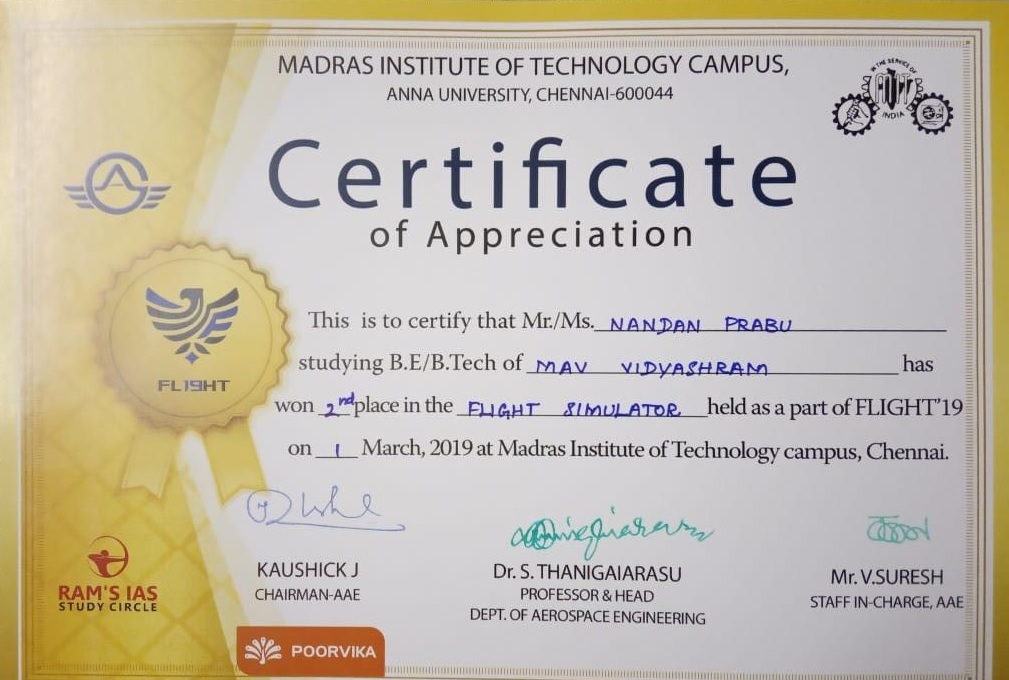 MADRAS INSTITUTE OF TECHNOLOGY CAMPUS,
ANNA UNIVERSITY, CHENNAI-600044
IN THE SERVICE OF
INDIA
Certificate
of Appreciation
FL19HT
This is to certify that Mr./Ms. NANDAN PRABU
studying B.E/B.Tech of MAV VIDYASHRAM has
won 2nd place in the FLIGHT SIMULATOR held as a part of FLIGHT'19
on 1 March, 2019 at Madras Institute of Technology campus, Chennai.
KAUSHICK J
CHAIRMAN-AAE
Dr. S. THANIGAIARASU
PROFESSOR & HEAD
DEPT. OF AEROSPACE ENGINEERING
Mr. V.SURESH
STAFF IN-CHARGE, AAE
RAM'S IAS
STUDY CIRCLE
POORVIKA